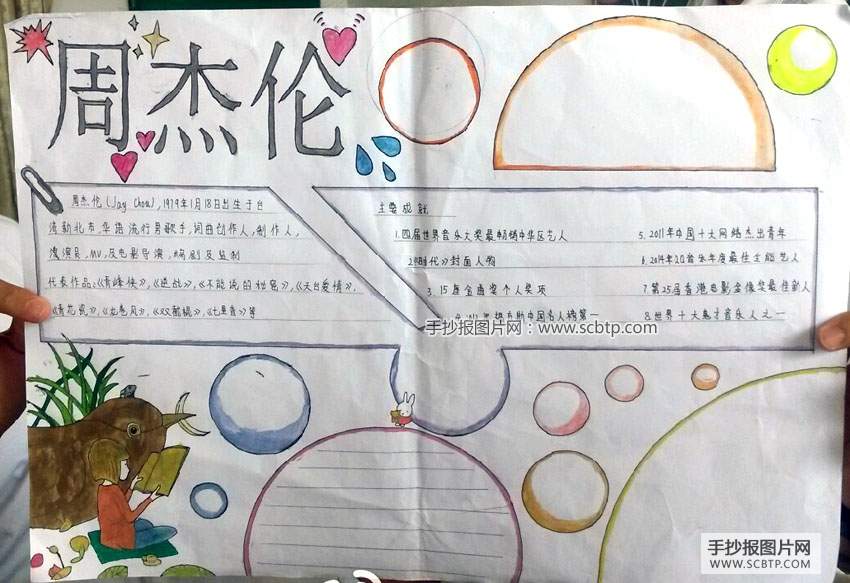 周杰伦
周杰伦(Jay Chou),1979年1月18日出生于台
湾新北市,华语流行男歌手,词曲创作人,制作人,
演员,MV,及电影导演,编剧及监制
代表作品:《青峰侠》,《逆战》,《不能说的秘密》,《天台爱情》,
《青花瓷》,《龙卷风》,《双截棍》,《七里香》等
主要成就
1.四届世界音乐大奖最畅销中华区艺人
2《时代》封面人物
3.15座金曲奖个人奖项
中国名人榜第一
5.2011年中国十大网络杰出青年
6.2014年QQ音乐年度最佳全能艺人
7.第25届香港电影金像奖最佳新人
8.世界十大鬼才音乐人之一
手抄报图片网:www.scbtp.com
手抄报图片网
WWW.SCBTP.COM